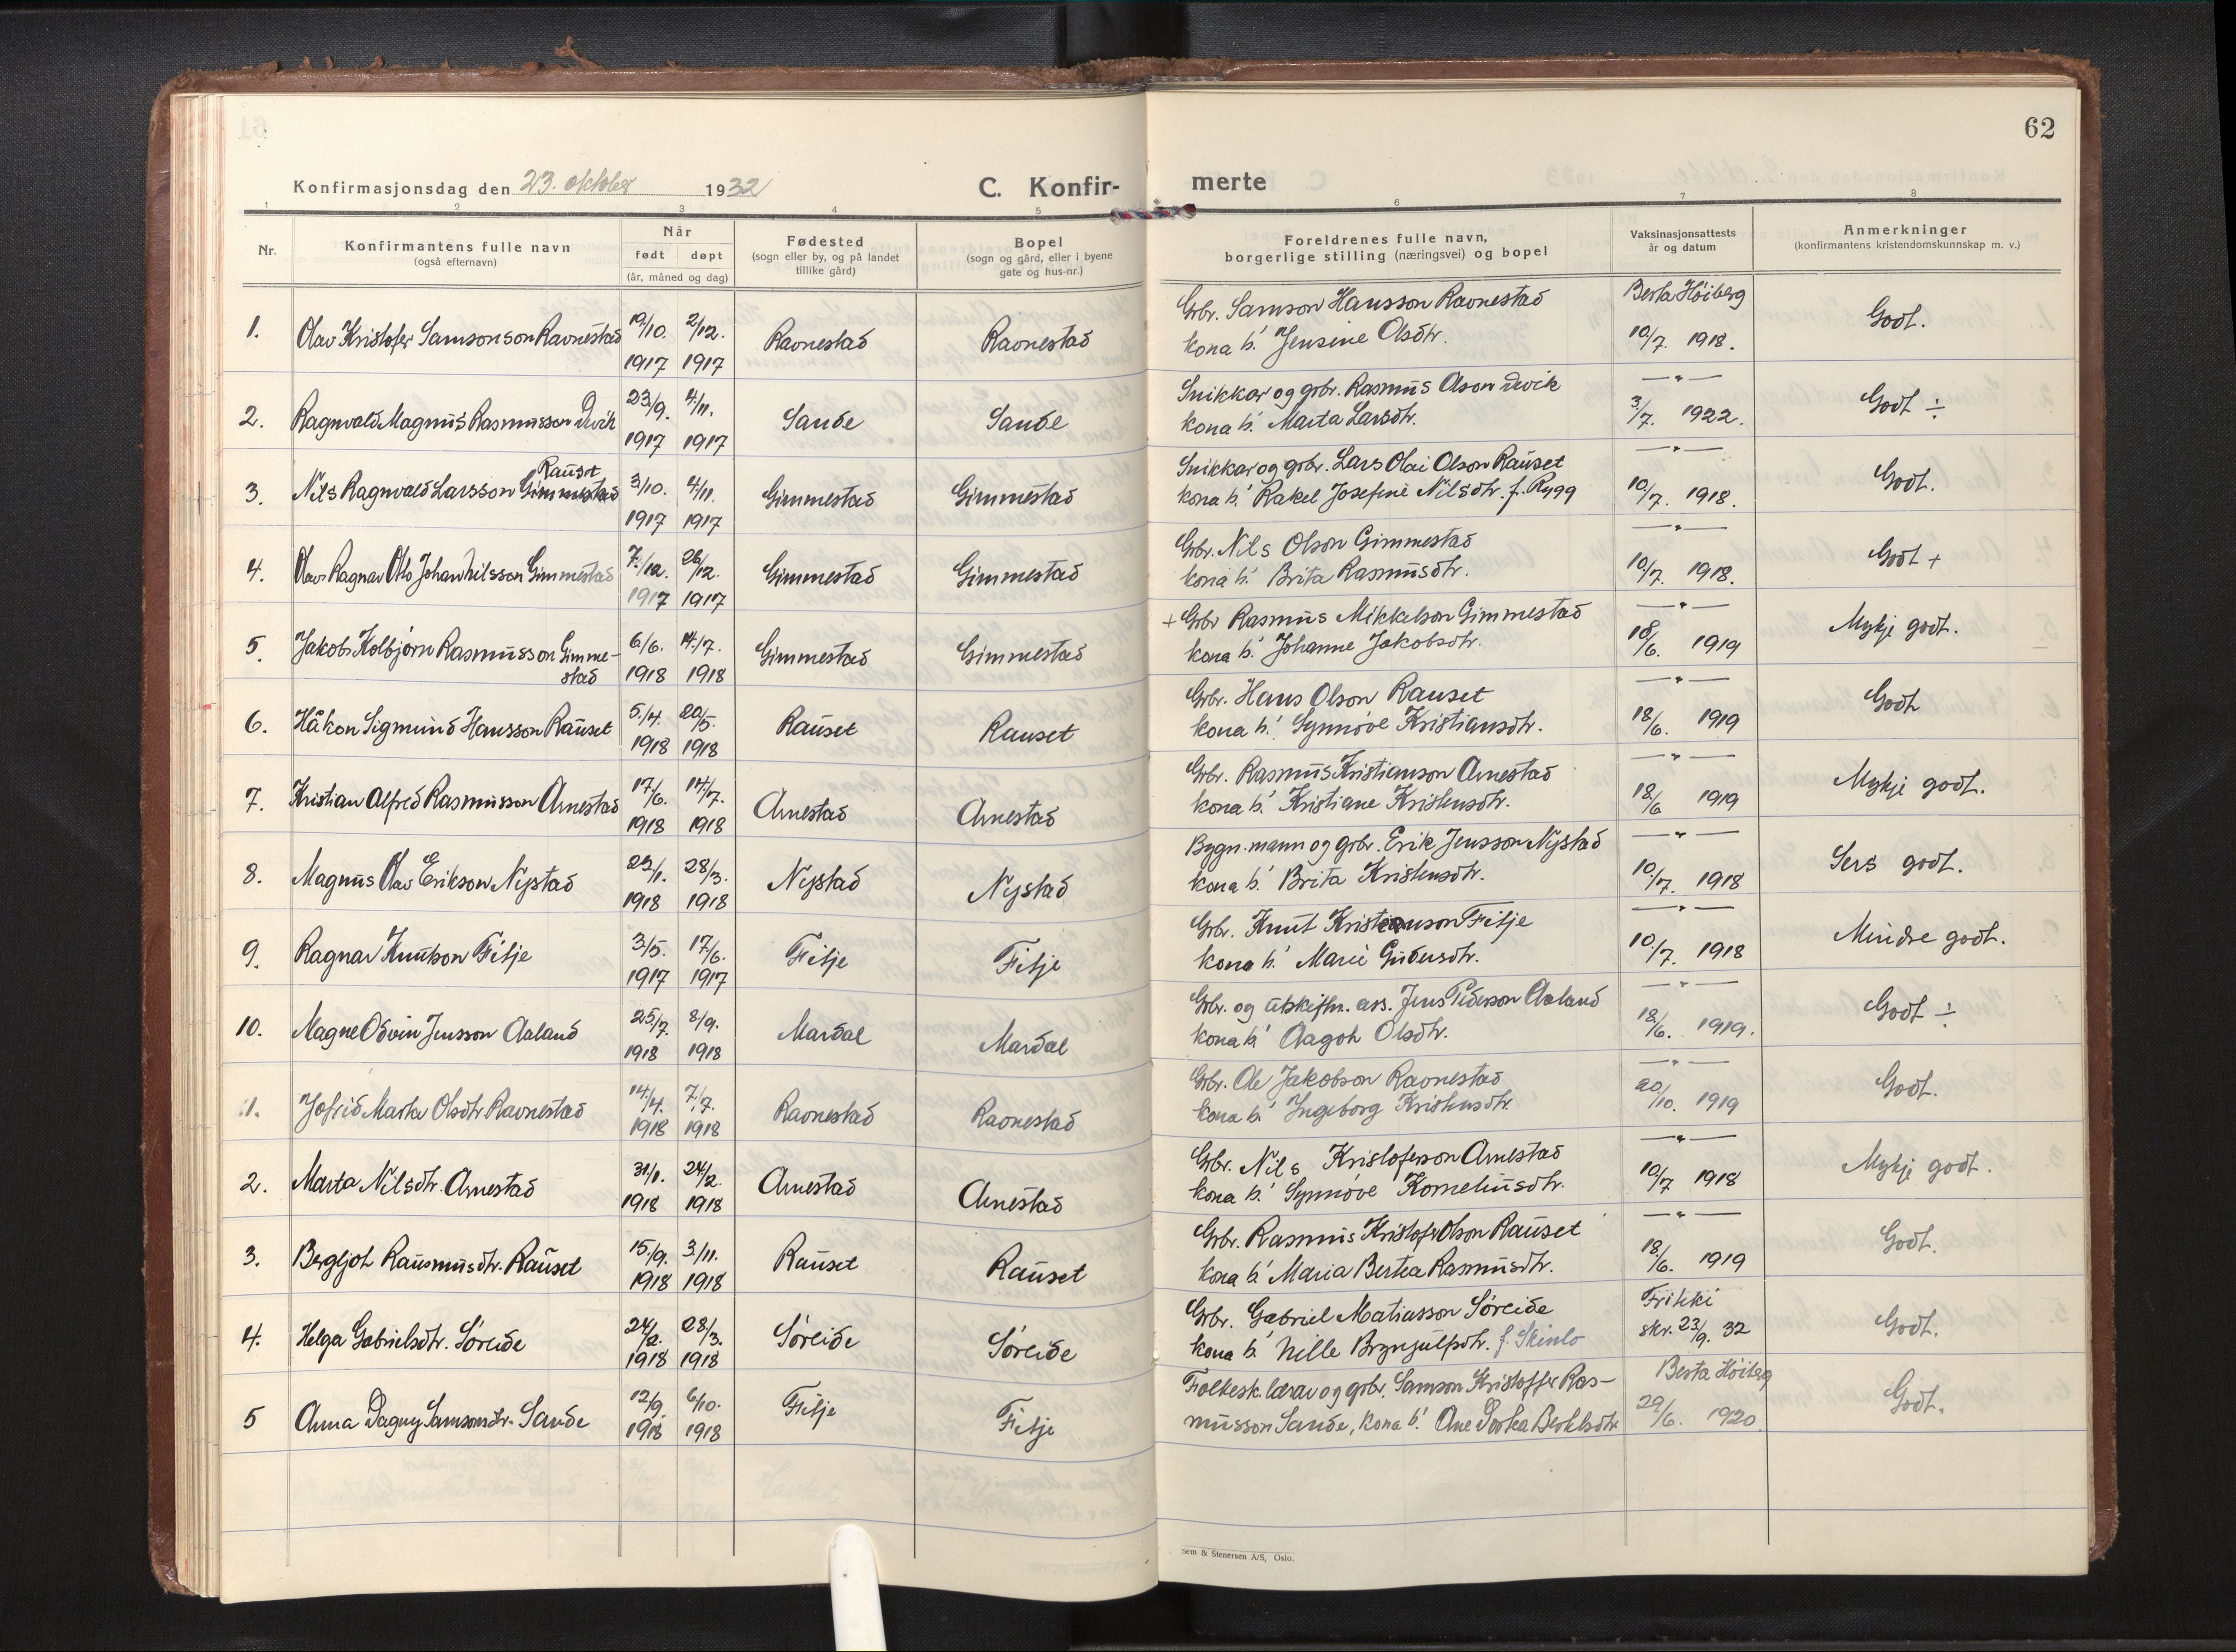 62
Konfirmasjonsdag den 23. oktober 1932
C. Konfir- merte
1 2 3 4 5 6 7 8
Nr.
Konfirmantens fulle navn
(også efternavn)
Når
født døpt
(år, måned og dag)
Fødested
(sogn eller by, og på landet
tillike gård)
Bopel
(sogn og gård, eller i byene
gate og hus-nr.)
Foreldrenes fulle navn,
borgerlige stilling (næringsvei) og bopel
Vaksinasjonsattests
år og datum
Anmerkninger
(konfirmantens kristendomskunnskap m. v.)
1. Olav Kristofer Samsonson Ravnestad 19/10. 2/12. Ravnestad Ravnestad Grbr. Samson Hansson Ravnestad Berta Höiberg Godt.
1917 1917 kona h.' Jensine Olsdtr. 10/7. 1918.
2. Ragnvald Magnus Rasmusson 23/9. 4/11. Sande Sande Snikkar og grbr. Rasmus Olson —"— Godt ÷
1917 1917 kona h.' Marta Larsdtr. 3/7. 1922.
Rauset
3. Nils Ragnvald Larsson Gimmestad 3/10. 4/11. Gimmestad Gimmestad Snikkar og grbr. Lars Olai Olson Rauset —"— Godt.
1917 1917 kona h.' Rakel Josefine Nilsdtr. f. Rygg 10/7. 1918.
4. Olav Ragnar Otto Johan Nilsson Gimmestad 7/12. 26/12. Gimmestad Gimmestad Grbr. Nils Olson Gimmestad —"— Godt +
1917 1917 kona h.' Brita Rasmusdtr. 10/7. 1918.
5. Jakob Kolbjørn Rasmusson Gimme- 6/6. 14/7. Gimmestad Gimmestad + Grbr Rasmus Mikkelson Gimmestad —"— Mykje godt.
stad 1918 1918 kona h.' Johanne Jakobsdtr. 18/6. 1919
6. Håkon Sigmund Hansson Rauset 5/4. 20/5. Rauset Rauset Grbr. Hans Olson Rauset —"— Godt
1918 1918 kona h.' Synnöve Kristiansdtr. 18/6. 1919
7. Kristian Alfred Rasmusson Arnestad 17/6. 14/7. Arnestad Arnestad Grbr. Rasmus Kristianson Arnestad —"— Mykje godt.
1918 1918 kona h.' Kristiane Kristensdtr. 18/6 1919
8. Magnus Olav Erikson Nystad 23/1. 28/3. Nystad Nystad Bygn.mann og grbr. Erik Jensson Nystad —"— Sers godt.
1918 1918 kona h.' Brita Kristensdtr. 10/7. 1918
9. Ragnar Knutson Fitje 3/5. 17/6. Fitje Fitje Grbr. Knut Fitje —"— Mindre godt.
1917 1917 kona h.' Marie Gudensdtr. 10/7. 1918
10. Magne Odvin Jensson Aaland 25/7. 8/9. Mardal Mardal Grbr. og utskiftn. ass. Jens Pederson Aaland —"— Godt ÷
1918 1918 kona h.' Aagoh Olsdtr. 18/6. 1919.
1. Jofrid Marta Olsdtr Ravnestad 14/4. 7/7. Ravnestad Ravnestad Grbr. Ole Jakobson Ravnestad —"— Godt.
1918 1918 kona h.' Ingeborg Kristensdtr. 20/10. 1919
2. Marta Nilsdtr. Arnestad 31/1. 24/2. Arnestad Arnestad Grbr. Nils Kristoferson Arnestad —"— Mykje godt.
1918 1918 kona h.' Synnöve Korneliusdtr. 10/7 1918
3. Bergljot Rausmusdtr. Rauset 15/9. 3/11. Rauset Rauset Grbr. Rasmus Kristofer Olson Rauset —"— Godt.
1918 1918 kona h.' Maria Bertea Rasmusdtr. 18/6. 1919
4. Helga Gabrielsdtr. Söreide 24/2. 28/3. Söreide Söreide Grbr. Gabriel Matiasson Söreide Frikki Godt.
1918 1918 kona h.' Nille Brynjulfsdtr. f. Skinlo skr. 23/9. 32
5 Anna Dagny Samsonsdtr. Sande 12/9. 6/10. Fitje Fitje Folkesk.lærar og grbr. Samson Kristoffer Ras- Berta Höiberg Godt.
1918 1918 musson Sande, kona h.' Ane Dortea Bertelsdtr 29/6. 1920
Sem & Stenersen A/S, Oslo.